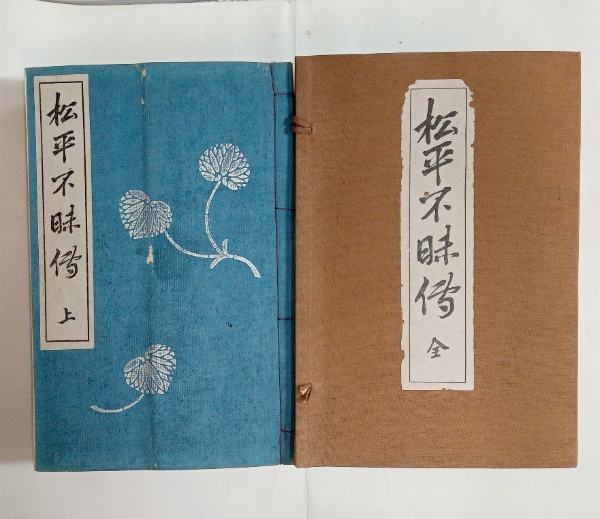 松平不昧傳
上
松平不昧傳
全